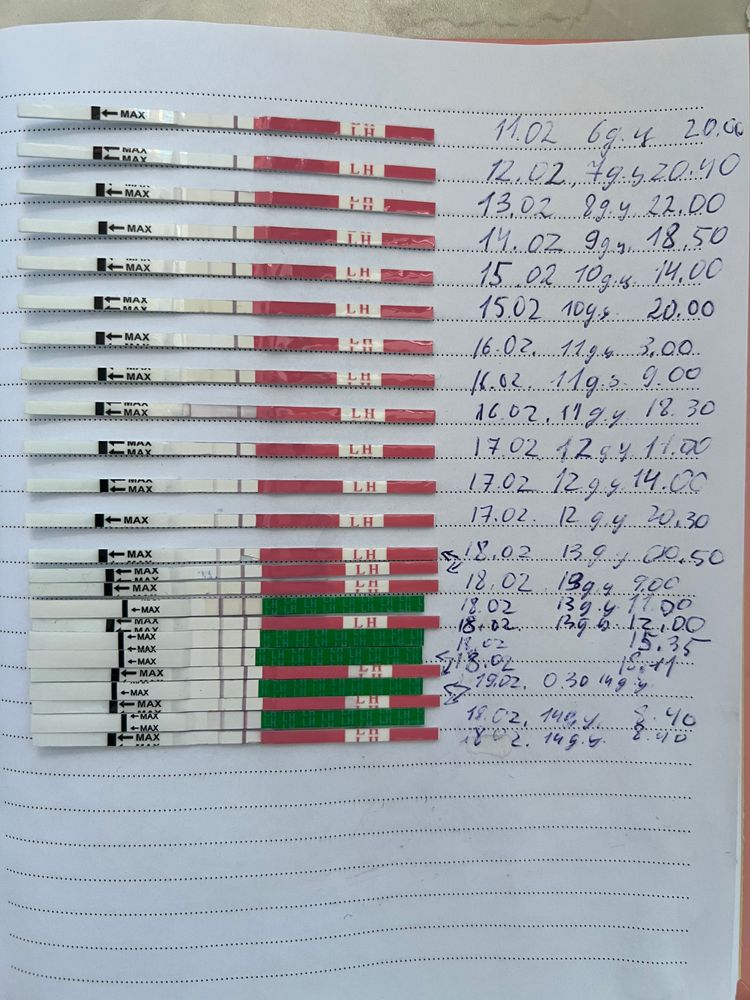 ← MAX LH 11.02 6д.ц 20.00
← MAX LH 12.02, 7д.ц 20.40
← MAX LH 13.02 8д.ц 22.00
← MAX LH 14.02 9д.ц. 18.50
← MAX LH 15.02 10д.ц. 14.00
← MAX LH 15.02 10д.ц. 20.00
← MAX LH 16.02. 11д.ц 3.00
← MAX LH 16.02. 11д.ц. 9.00
← MAX LH 16.02. 11д.ц 18.30
← MAX LH 17.02 12д.ц 11.00
← MAX LH 17.02 12д.ц 14.00
← MAX LH 17.02. 12д.ц 20.30
← MAX LH 18.02 13д.ц 00.50
← MAX LH
← MAX LH 18.02 13д.ц 9.00
← MAX 18.02 13д.ц 11.00
← MAX LH 18.02 13д.ц 12.00
← MAX 18.02 15.35
← MAX 18.02
← MAX LH
← MAX 19.02. 0.30 14д.ц
← MAX LH
← MAX 18.02. 14д.ц. 8.40
← MAX LH 18.02. 14д.ц. 8.40